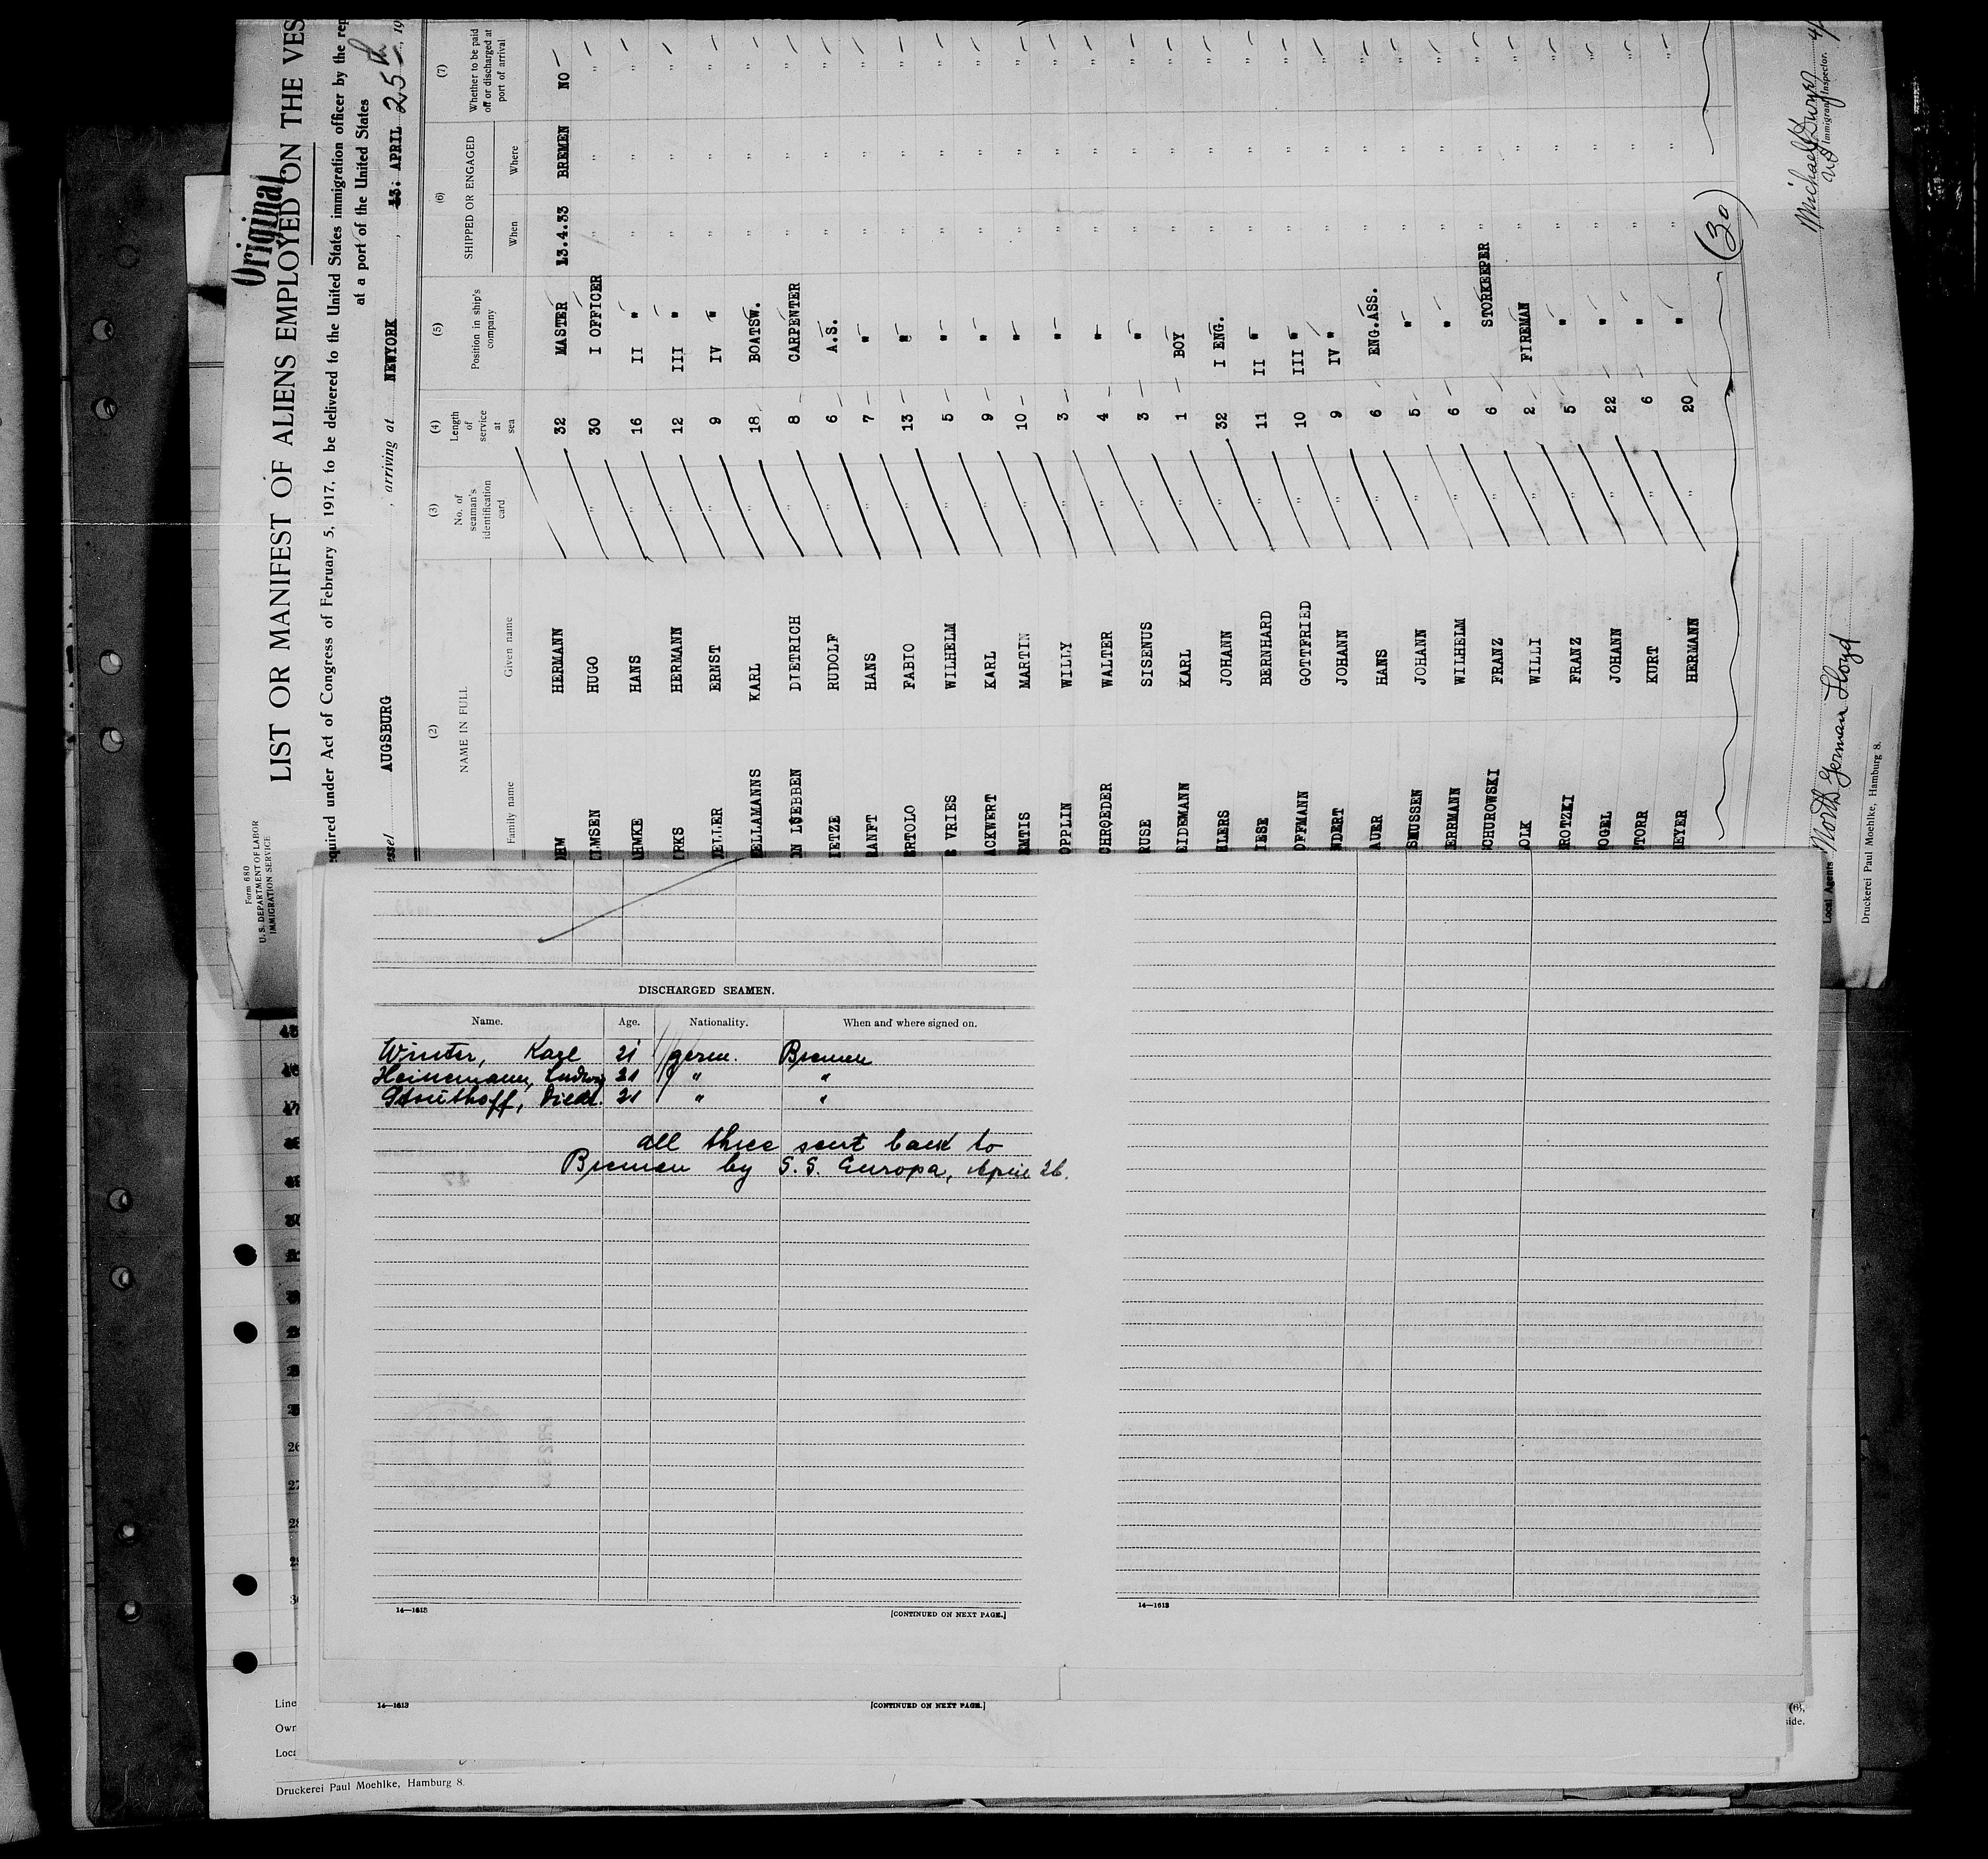 Form 680
U. S. DEPARTMENT OF LABOR
IMMIGRATION SERVICE
Original
LIST OR MANIFEST OF ALIENS EMPLOYED ON THE VES
quired under Act of Congress of February 5, 1917, to be delivered to the United States immigration officer by the rep
at a port of the United States
ssel AUGSBURG , arriving at NEWYORK , 13: APRIL 25th , 19
(2) (3) (4) (5) (6) (7)
NAME IN FULL No. of seaman's identification card Length of service at sea Position in ship's company SHIPPED OR ENGAGED Whether to be paid off or discharged at port of arrival
Family name Given name When Where
OHM HERMANN 32 MASTER 13.4.33 BREMEN NO
ILMSEN HUGO 30 I OFFICER " " "
AHMKE HANS " 16 II " " " "
IRKS HERMANN " 12 III " " " "
ELLER ERNST " 9 IV " " " "
ELLAMANNS KARL " 18 BOATSW. " " "
ON LUEBBEN DIETRICH " 8 CARPENTER " " "
IETZE RUDOLF " 6 A.S. " " "
RANFT HANS " 7 " " " "
ERTOLO FABIO " 13 " " " "
E VRIES WILHELM " 5 " " " "
ACKWERT KARL " 9 " " " "
EMTIS MARTIN " 10 " " " "
OPPLIN WILLY " 3 " " " "
CHROEDER WALTER " 4 " " " "
RUSE SISENUS " 3 " " " "
EIDEMANN KARL " 1 BOY " " "
HLERS JOHANN " 32 I ENG. " " "
IESE BERNHARD " 11 II " " " "
OFFMANN GOTTFRIED " 10 III " " " "
NDERT JOHANN " 9 IV " " " "
AUER HANS " 6 ENG.ASS. " " "
SMUSSEN JOHANN " 5 " " " "
ERRMANN WILHELM " 6 " " " "
CHUROWSKI FRANZ " 6 STORKEEPER " " "
OLK WILLI " 2 FIREMAN " " "
ROTZKI FRANZ " 5 " " " "
OGEL JOHANN " 22 " " " "
TORR KURT " 6 " " " "
EYER HERMANN " 20 " " " "
(30)
Local Agents North German Lloyd
Michael Dwyer
US Immigrant Inspector.
Druckerei Paul Moehlke, Hamburg 8.
DISCHARGED SEAMEN.
Name. Age. Nationality. When and where signed on.
Winter, Karl 21 germ. Bremen
Heinemann, Ludwig 21 " "
Diedr. 21 " "
all three sent back to
Bremen by S.S. Europa, April 26.
14—1613 [CONTINUED ON NEXT PAGE.] 14—1613
14—1613 [CONTINUED ON NEXT PAGE.]
26
27
28
29
Line
Own
Loca
(6),
side.
Druckerei Paul Moehlke, Hamburg 8.